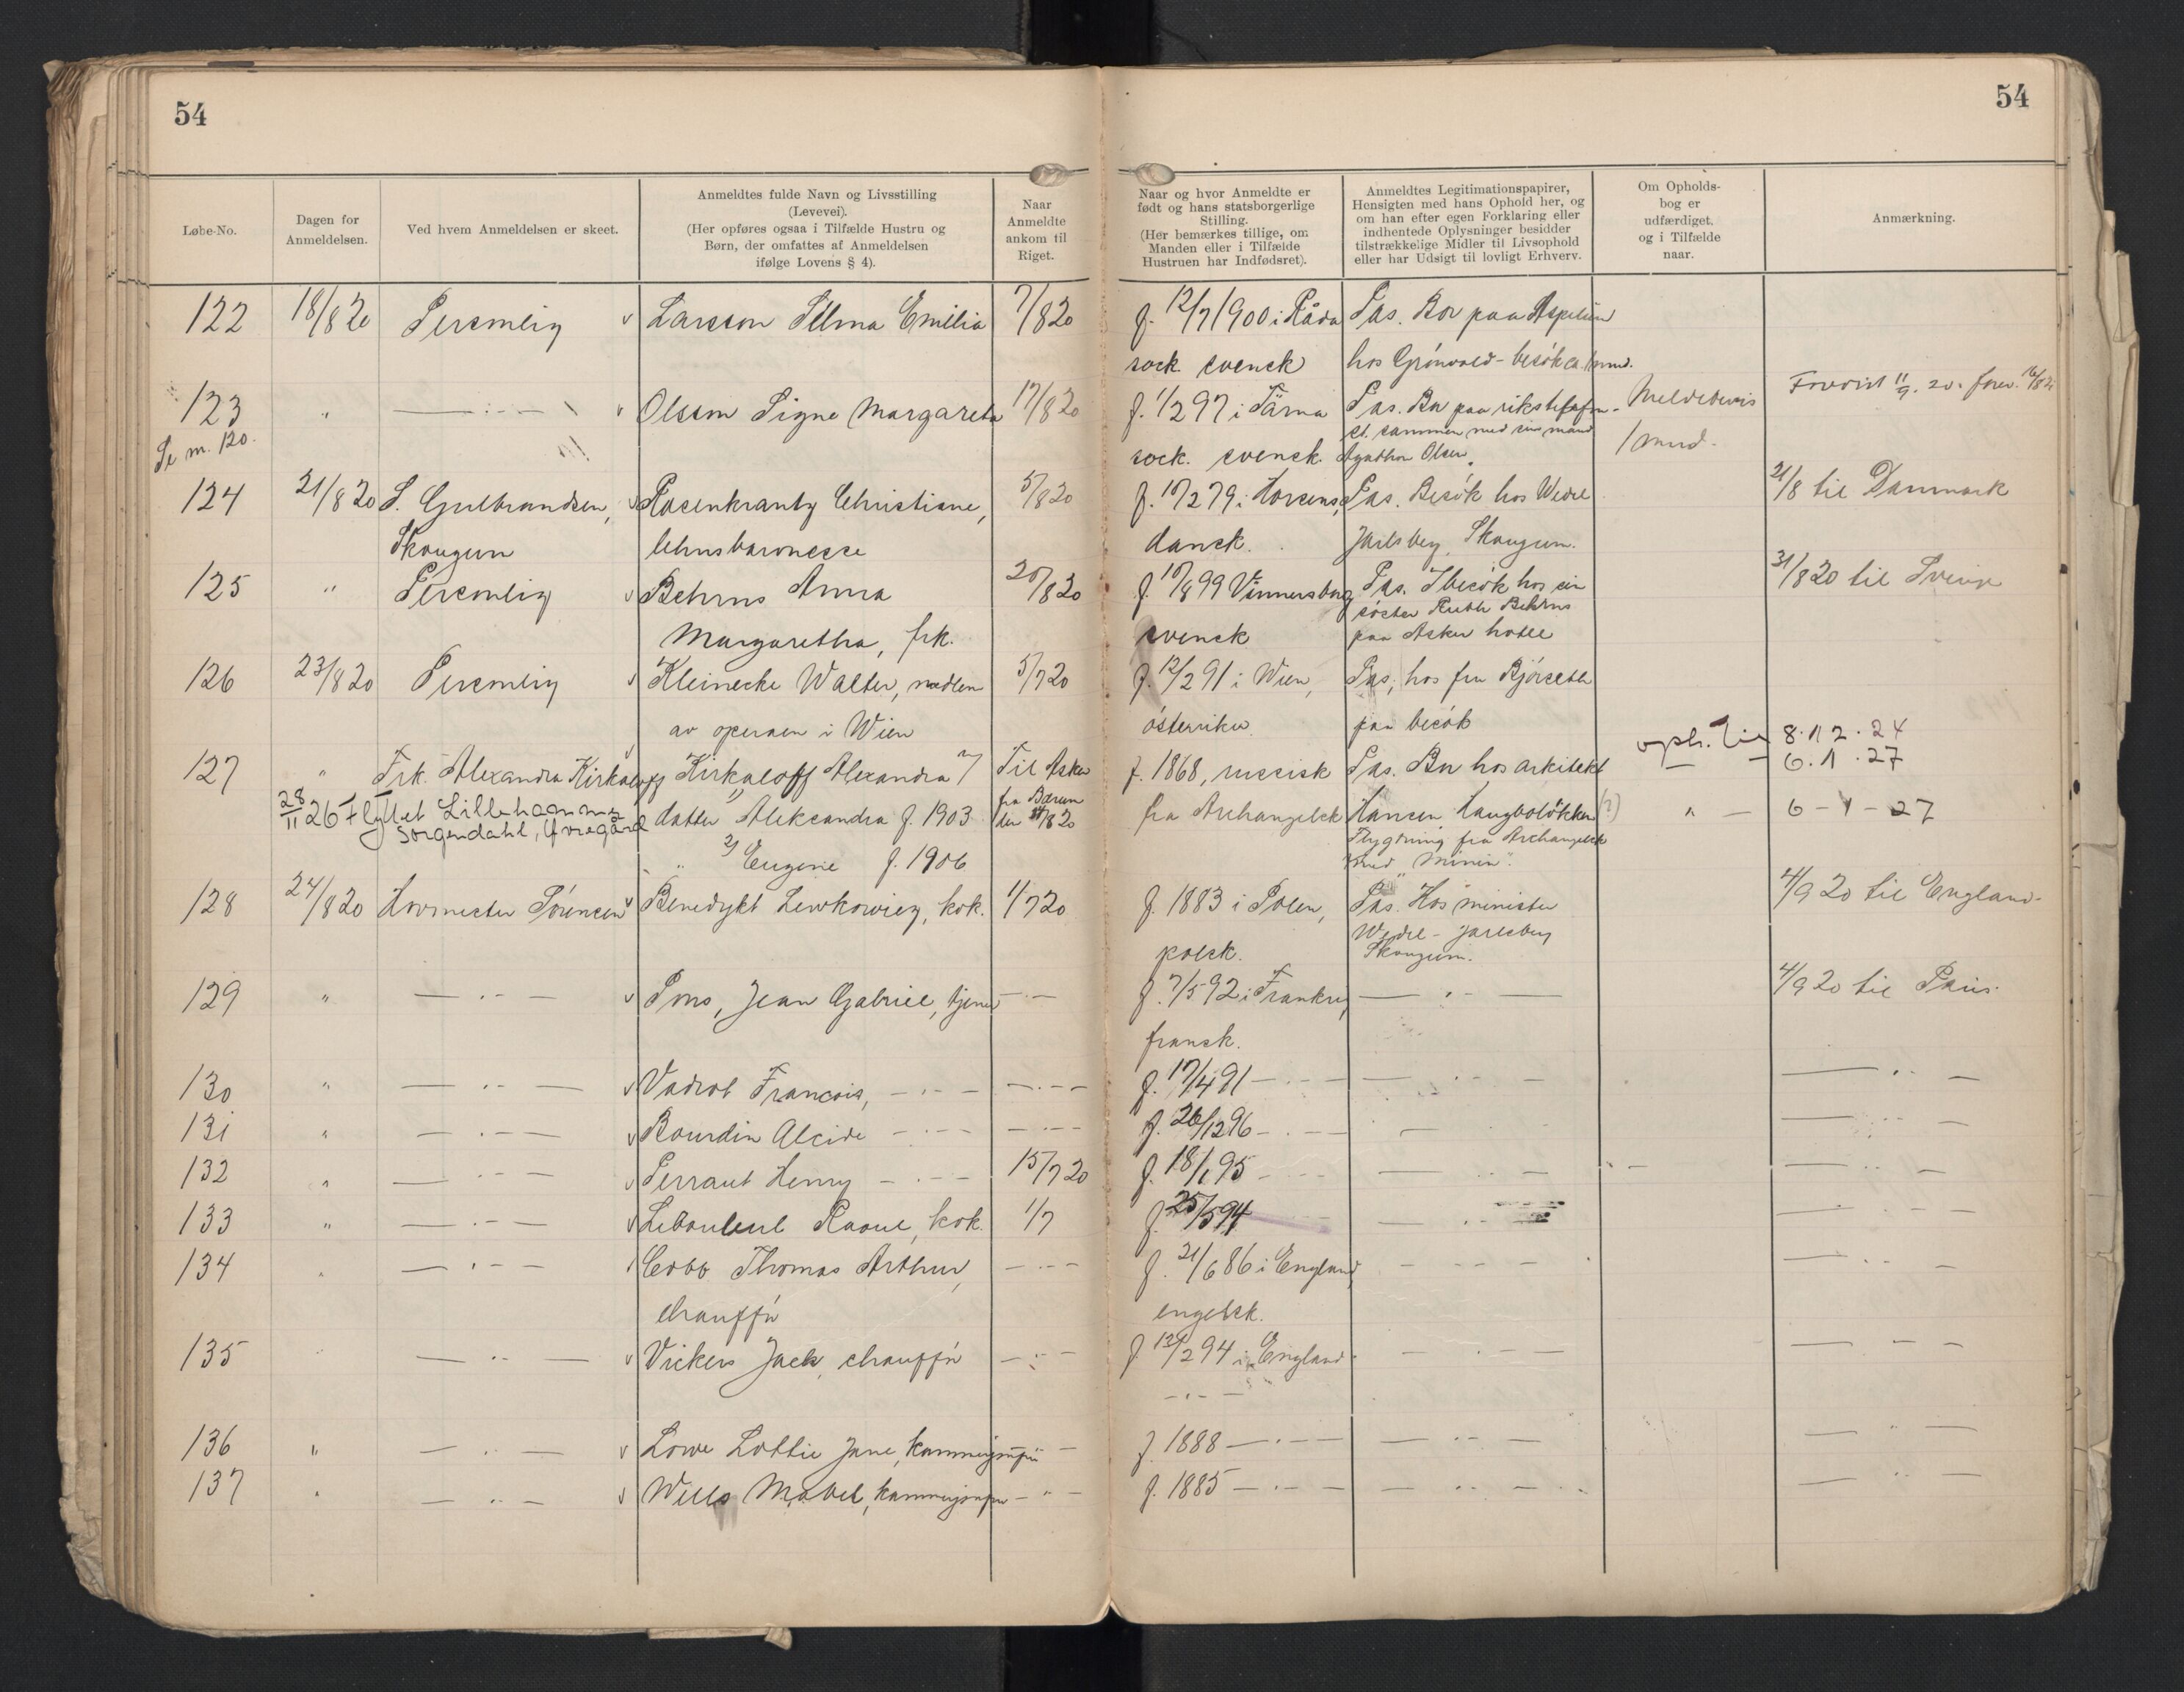 54
54
Løbe-No.
Dagen for Anmeldelsen.
Ved hvem Anmeldelsen er skeet.
Anmeldtes fulde Navn og Livsstilling (Levevei). (Her opføres ogsaa i Tilfælde Hustru og Børn, der omfattes af Anmeldelsen ifølge Lovens § 4).
Naar Anmeldte ankom til Riget.
Naar og hvor Anmeldte er født og hans statsborgerlige Stilling. (Her bemærkes tillige, om Manden eller i Tilfælde Hustruen har Indfødsret).
Anmeldtes Legitimationspapirer, Hensigten med hans Ophold her, og om han efter egen Forklaring eller indhentede Oplysninger besidder tilstrækkelige Midler til Livsophold eller har Udsigt til lovligt Erhverv.
Om Opholdsbog er udfærdiget, og i Tilfælde naar.
Anmærkning.
122 18/8 20 Personlig Larsson Selma Emilia 7/8 20 f. 12/7 1900 i Råda Pas. Bor paa
sock. svensk hos Grönvold - besök ca. 1 mnd.
123 " — : — Olsson Signe Margareta 17/8 20 f. 1/2 97 i Tärna Pas. Bor paa Meldebevis 11/9. 20.
Se nr. 120. sock. svensk. st. sammen med sin mand 1 mnd.
124 21/8 20 S. Gulbrandsen, Rosenkrantz Christiane, 5/8 20 f. 10/2 79 i Horsens, Pas. Besök hos Wedel 21/8 til Danmark
Skaugum lehnsbaronesse dansk. Jarlsberg, Skaugum.
125 " Personlig Behrns Anna 20/8 20 f. 10/8 99 Vännersborg Pas. I besök hos sin 31/8 20 til Sverige
söster Ruth Behrns
Margaretha, frk. svensk paa Asker hotel
126 23/8 20 Personlig Kleinecke Walter, medlem 5/7 20 f. 12/2 91 i Wien, Pas, hos fru Björseth
av operaen i Wien österriker. paa besök
127 " Frk. Alexandra Kirkaloff Kirkaloff Alexandra Til Asker f. 1868, russisk Pas. Bor hos arkitekt oph. til 8.12.24
6.1.27
28/11 26 Flyttet Lillehammer 1) datter Aleksandra f. 1903 fra Bærum fra Archangelsk Hansen Haugboløkken (?) " — 6-1-27
Sorgendahl, Øvregård den 8 20 Flygtning fra Archangelsk
" 2) Eugenie f. 1906 med "Minin".
128 24/8 20 Hovmester Sörensen Benedykt Lewkowicz, kok. 1/7 20 f. 1883 i Polen, Pas. Hos minister 4/9 20 til England.
polsk. Wedel-Jarlsberg
Skaugum.
129 " — " — Pons, Jean Gabriel, tjener — " — f. 7/5 92 i Frankrig, — " — 4/9 20 til Paris.
fransk.
130 " — " — Vadrot Francois, — " — — " — f. 17/4 91 — " — — " — — " —
131 " — " — Bourdin Alcide — " — — " — f. 26/12 96 — " — — " — — " —
132 " — " — Perraut Henry — " — 15/7 20 f. 18/1 95 — " — — " — — " —
133 " — " — Raoul, kok. 1/7 f. 25/5 94 — " — — " —
134 " — " — Cobb Thomas Arthur, — " — f. 21/6 86 i England, — " — — " —
chauffør engelsk.
135 " — " — Vickers Jack, chauffør — " — f. 12/2 94 i England — " — — " —
— " —
136 " — " — Lowe Lottie Jane, kammerjomfru — " — f. 1888 — " — — " — — " —
137 " — " — Wells Mabel, kammerjomfru — " — f. 1885 — " — — " — — " —